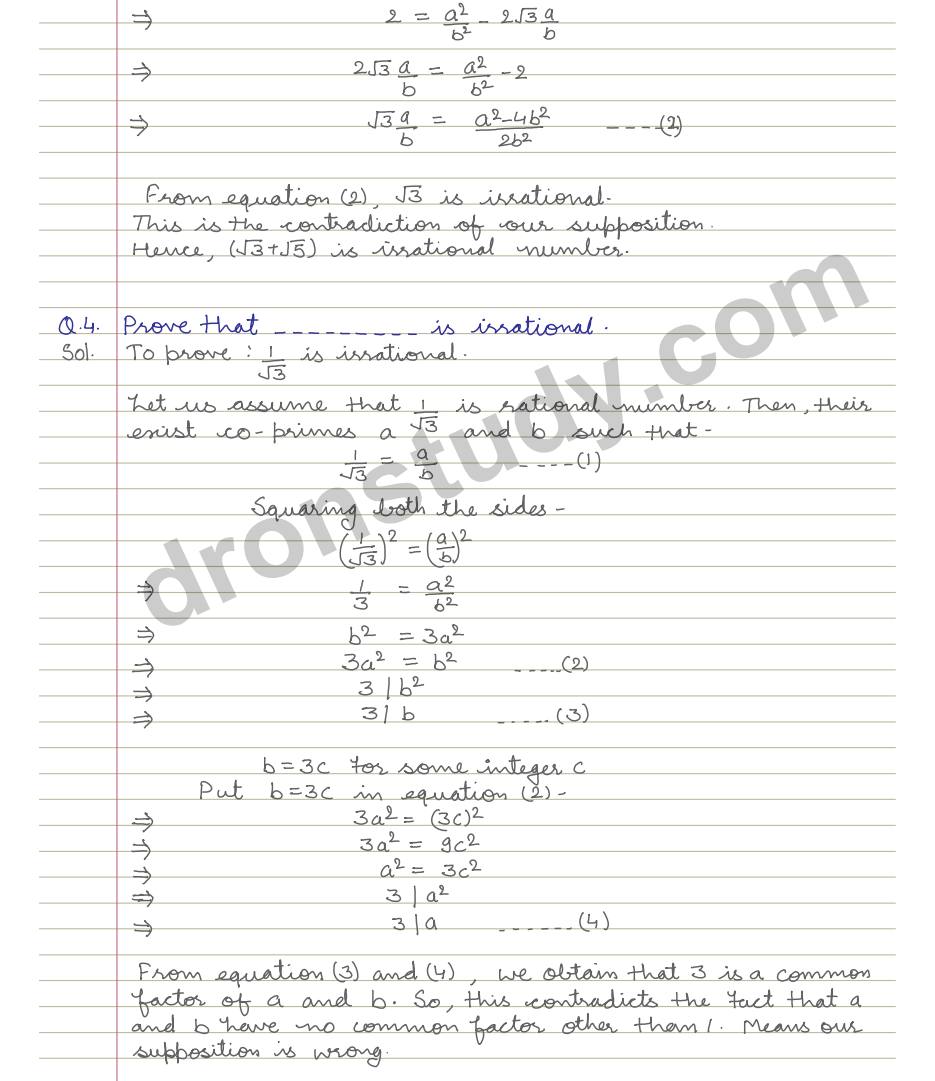 ⇒ 2 = a²/b² - 2√3 a/b
⇒ 2√3 a/b = a²/b² - 2
⇒ √3 a/b = a²-4b²/2b² ----(2)
From equation (2), √3 is irrational.
This is the contradiction of our supposition.
Hence, (√3+√5) is irrational number.
Q.4. Prove that ---------- is irrational.
Sol. To prove : 1/√3 is irrational.
Let us assume that 1/√3 is rational number. Then, their
exist co-primes a and b such that-
1/√3 = a/b ----(1)
Squaring both the sides-
(1/√3)² = (a/b)²
⇒ 1/3 = a²/b²
⇒ b² = 3a²
⇒ 3a² = b² -----(2)
⇒ 3 | b²
⇒ 3 | b -----(3)
b = 3c for some integer c
Put b = 3c in equation (2)-
⇒ 3a² = (3c)²
⇒ 3a² = 9c²
⇒ a² = 3c²
⇒ 3 | a²
⇒ 3 | a ------(4)
From equation (3) and (4), we obtain that 3 is a common
factor of a and b. So, this contradicts the fact that a
and b have no common factor other than 1. Means our
supposition is wrong.
dronstudy.com